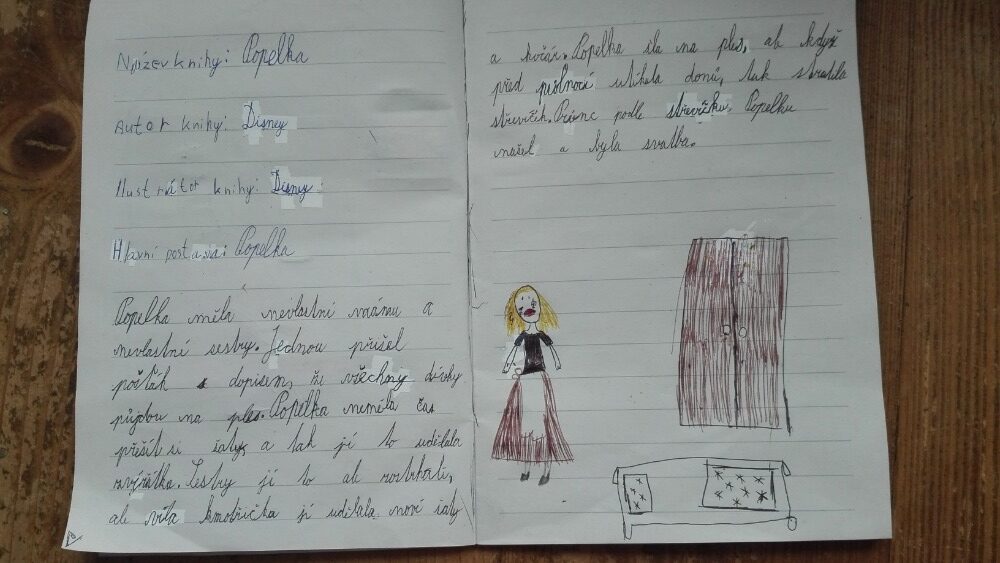 Název knihy: Popelka
Autor knihy: Disney
Ilustrátor knihy: Disney
Hlavní postava: Popelka
Popelka měla nevlastní mámu a
nevlastní sestry. Jednou přišel
pošťák s dopisem, že všechny dívky
půjdou na ples. Popelka neměla čas
přešít si šaty a tak jí to udělala
zvířátka. Sestry jí to ale roztrhali,
ale víla kmotřička jí udělala nové šaty
a kočár. Popelka šla na ples, ale když
před půlnocí utíkala domů, tak ztratila
střevíček. Princ podle střevíčku Popelku
našel a byla svatba.